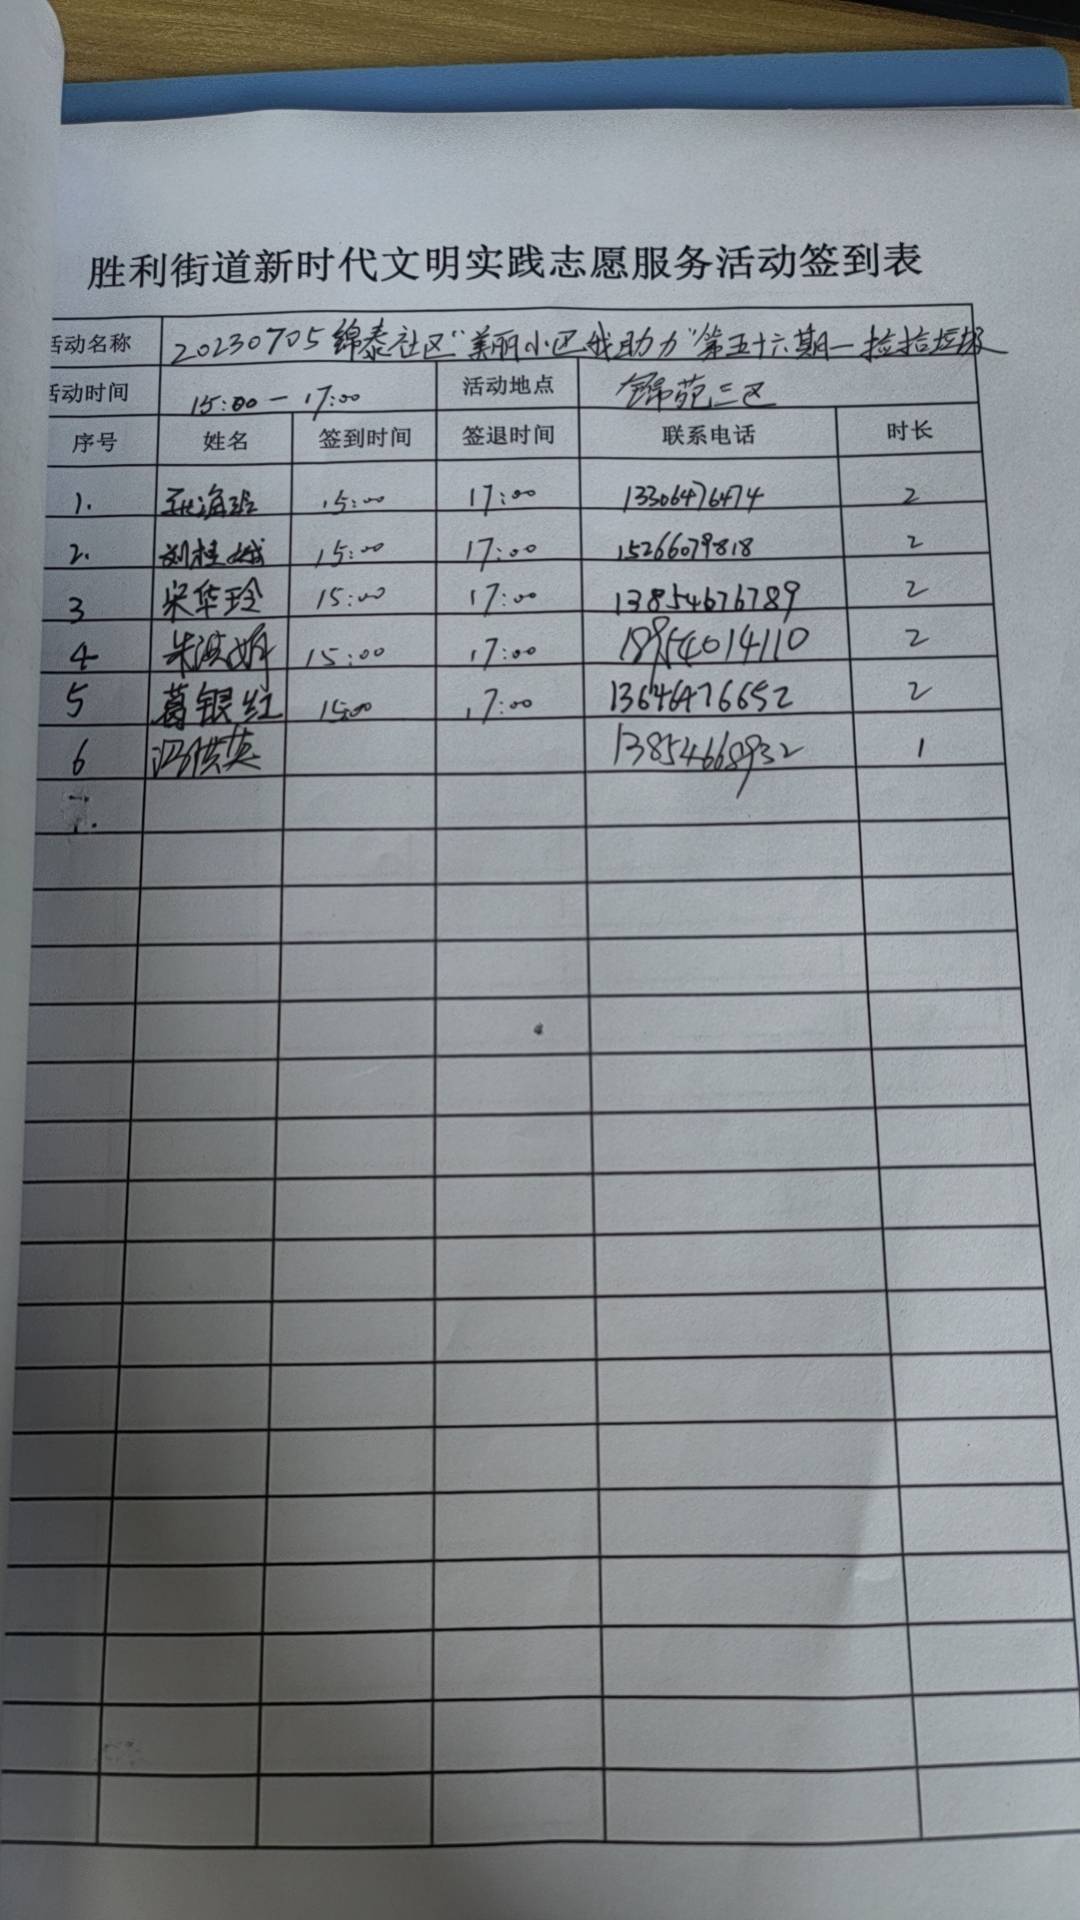 胜利街道新时代文明实践志愿服务活动签到表
活动名称 20230705锦泰社区“美丽小区我助力”第五十六期—捡捡垃圾
活动时间 15:00—17:00 活动地点 锦苑三区
序号 姓名 签到时间 签退时间 联系电话 时长
1. 15:00 17:00 13306476474 2
2. 刘桂娥 15:00 17:00 15266079818 2
3 宋华玲 15:00 17:00 13854676789 2
4 朱滨娟 15:00 17:00 18954014110 2
5 葛银红 15:00 17:00 13646476652 2
6 冯洪英 13854668932 1